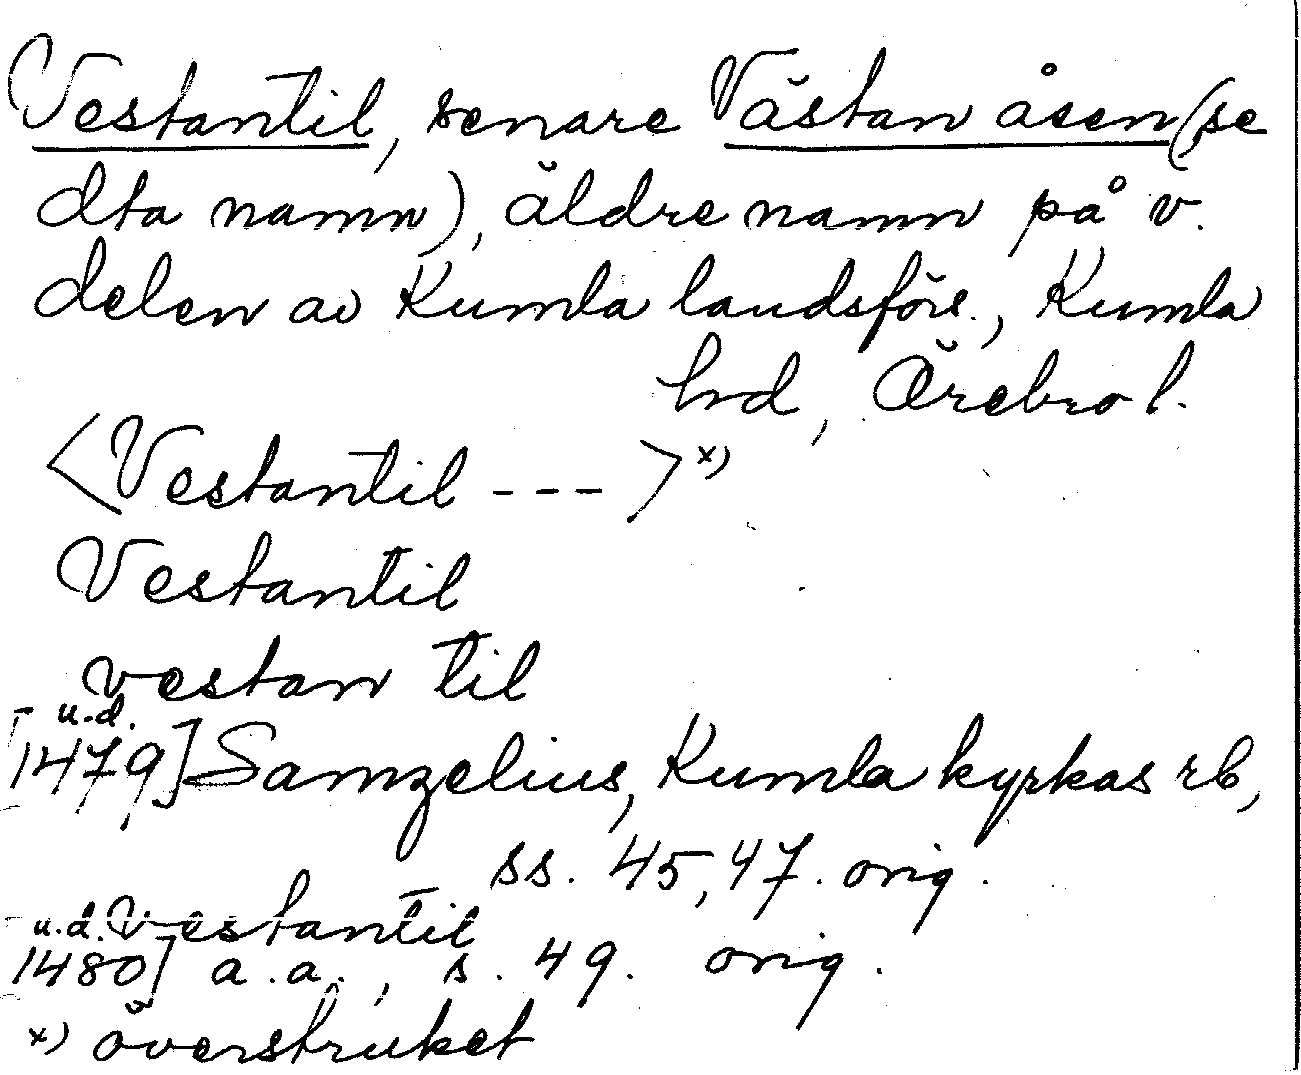 Vestantil, senare Västan åsen (se
dta namn), äldre namn på v.
delen av Kumla landsförs., Kumla
hd, Örebro l.
<Vestantil --->x)
Vestantil
vestan til
u.d.
[1479] Samzelius, Kumla kyrkas rb,
ss. 45, 47. orig.
u.d. Vestantil
1480] a.a., s. 49. orig.
x) överstruket